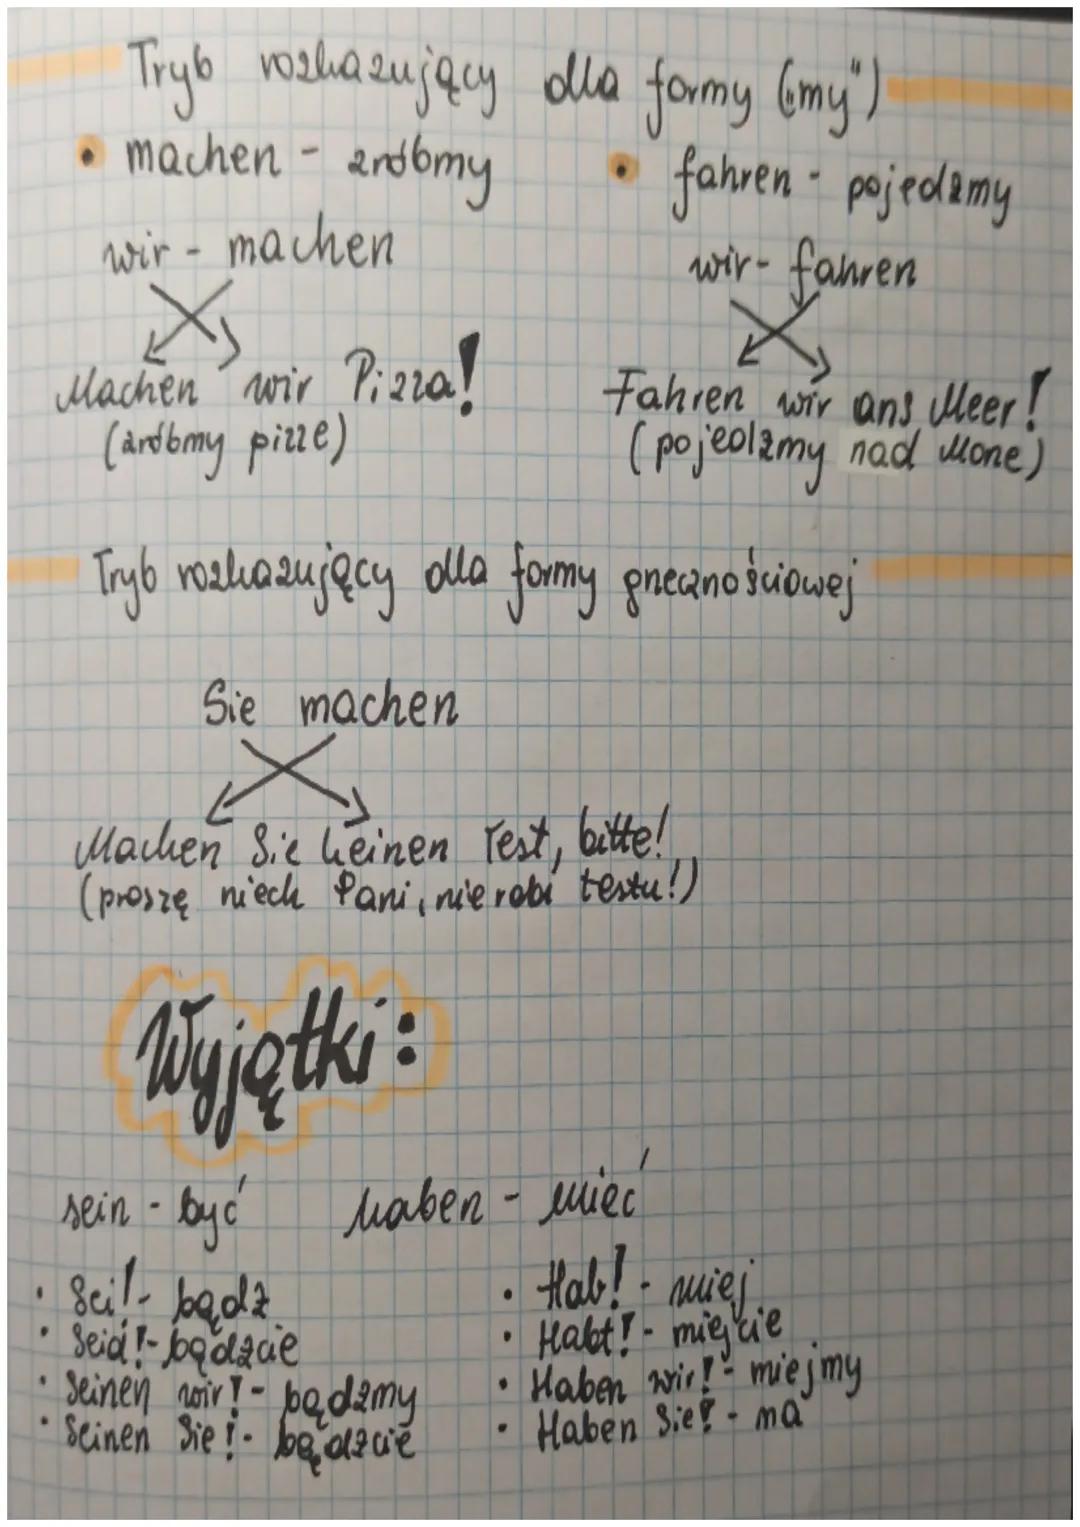 Tryb rozkazujący dla formy („my")
• machen - zróbmy
wir - machen
Machen wir Pizza!
(zróbmy pizze)
• fahren - pojedzmy
wir - fahren
Fahren wir ans Meer!
(pojedzmy nad Morze)
Tryb rozkazujący dla formy grzecznościowej
Sie machen
Machen Sie keinen Test, bitte!
(proszę niech Pani, nie robi testu!)
Wyjątki:
sein - być
• Sei! - bądz
• Seid! - bądzcie
• Seinen wir! - bądzmy
• Seinen Sie! - bądzcie
haben - mieć
• Hab! - miej
• Habt! - miejcie
• Haben wir! - miejmy
• Haben Sie! - ma